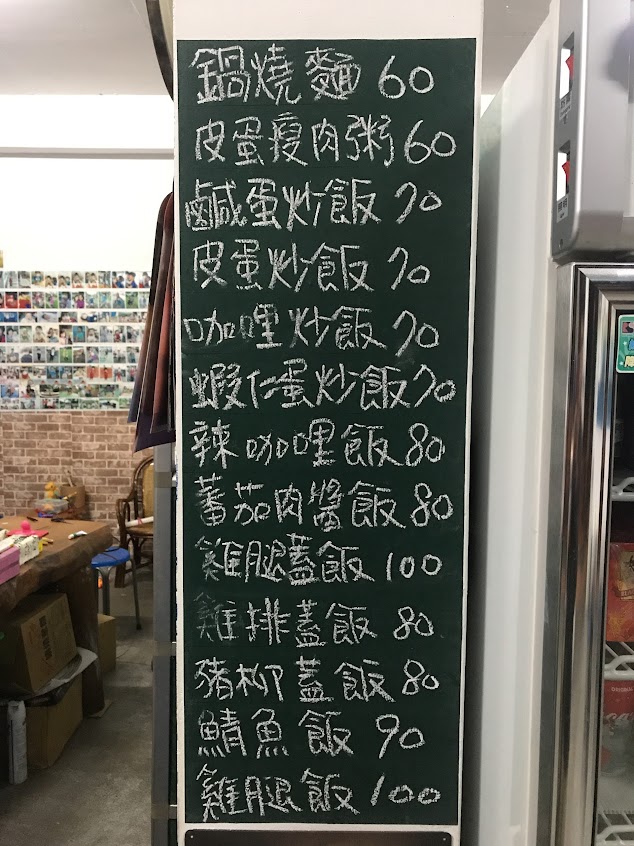 鍋燒麵 60
皮蛋瘦肉粥 60
鹹蛋炒飯 70
皮蛋炒飯 70
咖哩炒飯 70
蝦仁蛋炒飯 70
辣咖哩飯 80
蕃茄肉醬飯 80
雞腿蓋飯 100
雞排蓋飯 80
豬柳蓋飯 80
鯖魚飯 90
雞腿飯 100